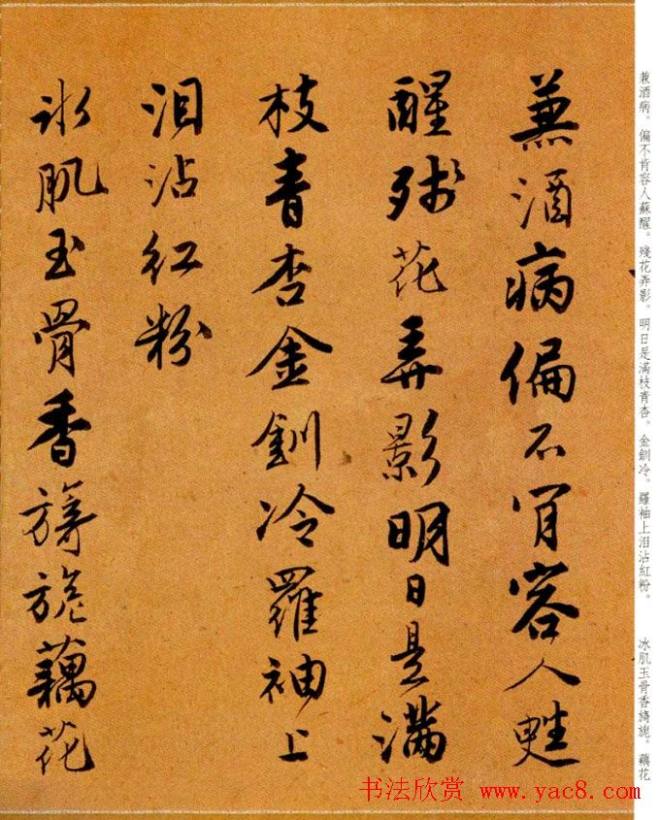 兼酒病偏不肎容人甦
醒残花弄影明日是滿
枝青杏金釧冷羅袖上
泪沾红粉
冰肌玉骨香旖旎藕花
兼酒病。偏不肯容人蘇醒。殘花弄影。明日是滿枝青杏。金釧冷。羅袖上泪沾紅粉。 冰肌玉骨香旖旎。藕花
书法欣赏 www.yac8.com